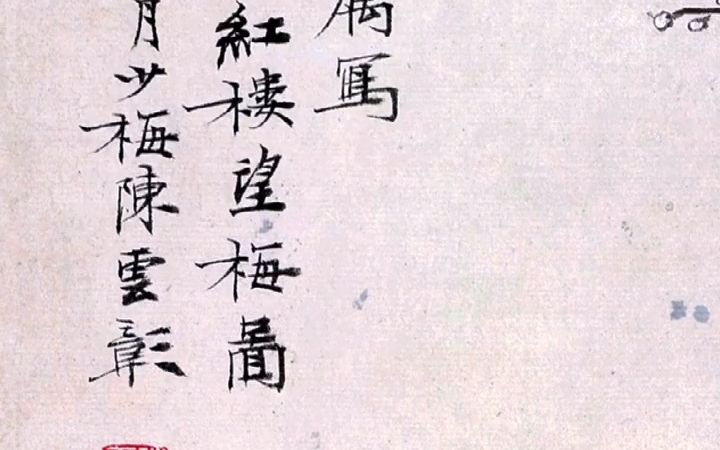 寫
紅樓望梅圖
月少梅陳雲彰